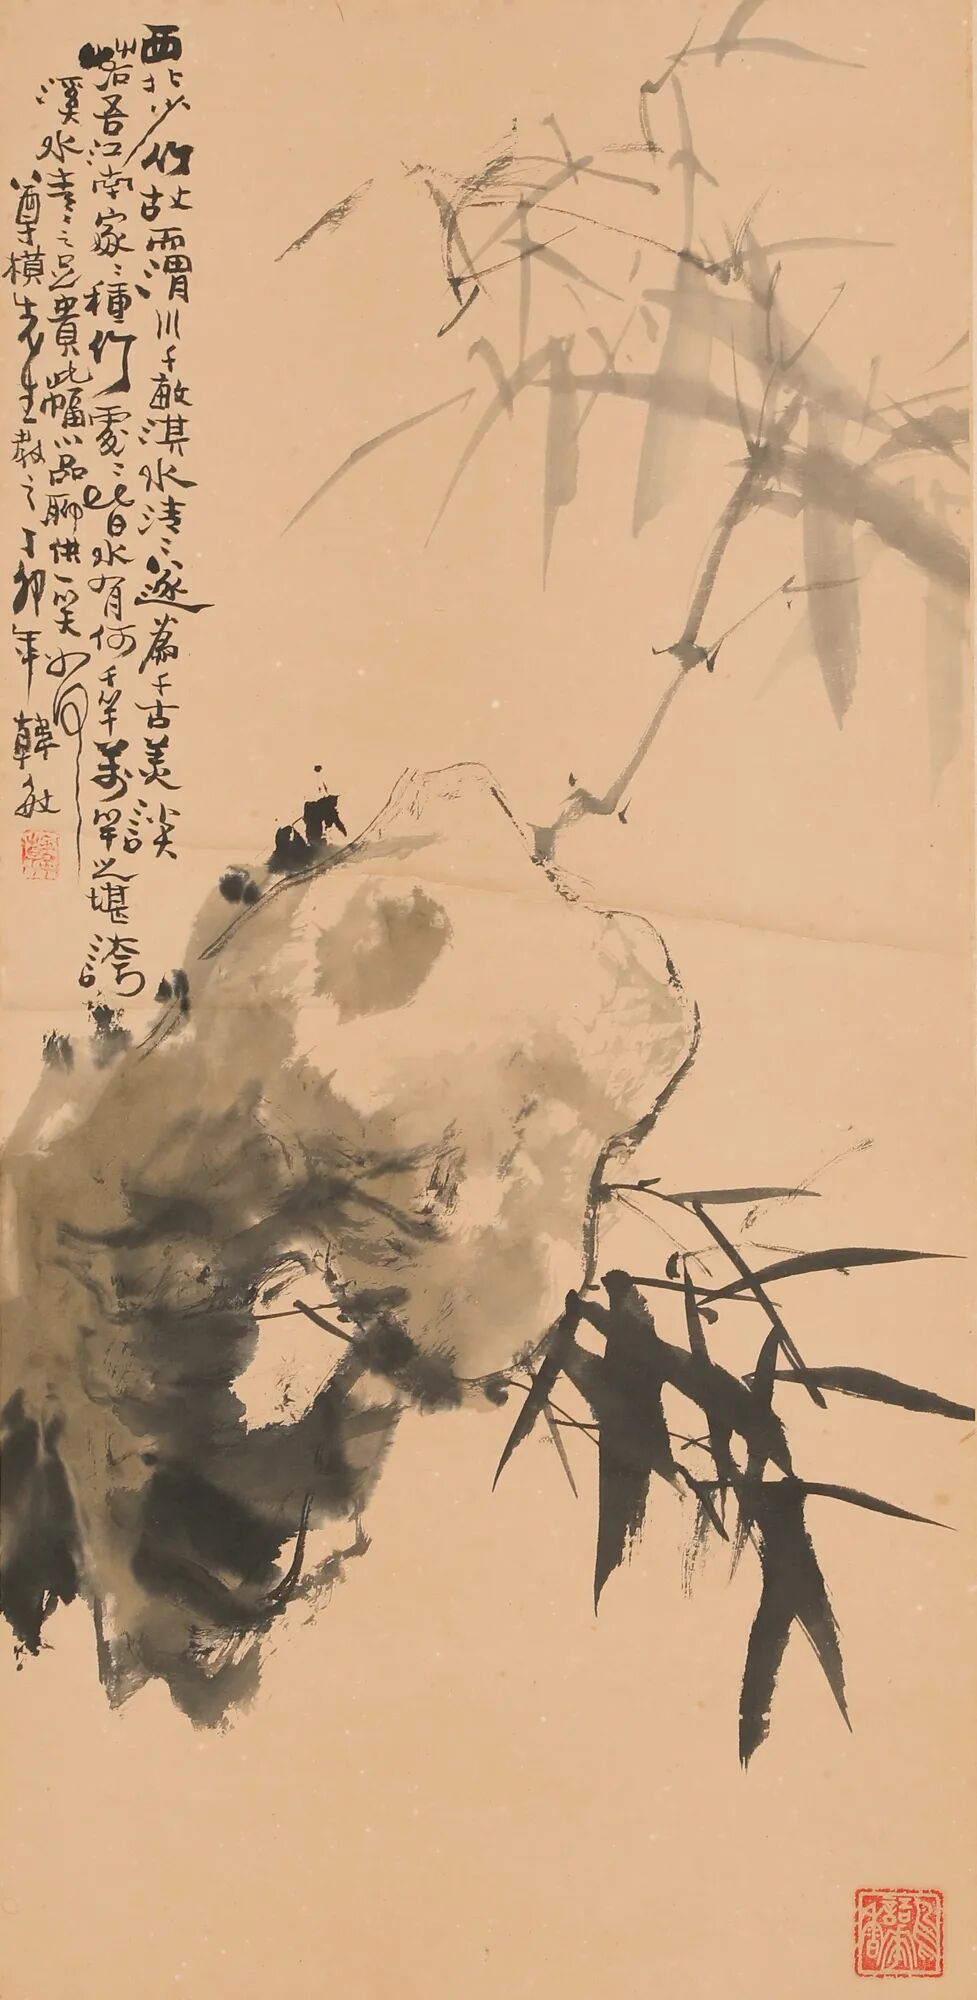 西北少竹故古渭川千畝淇水清々遂為千古美談
若吾江南家々種竹處々皆水有何千竿萬竿之堪誇
溪水青々之足貴此幅小品聊供一笑
尊模先生教之丁卯年韓敏